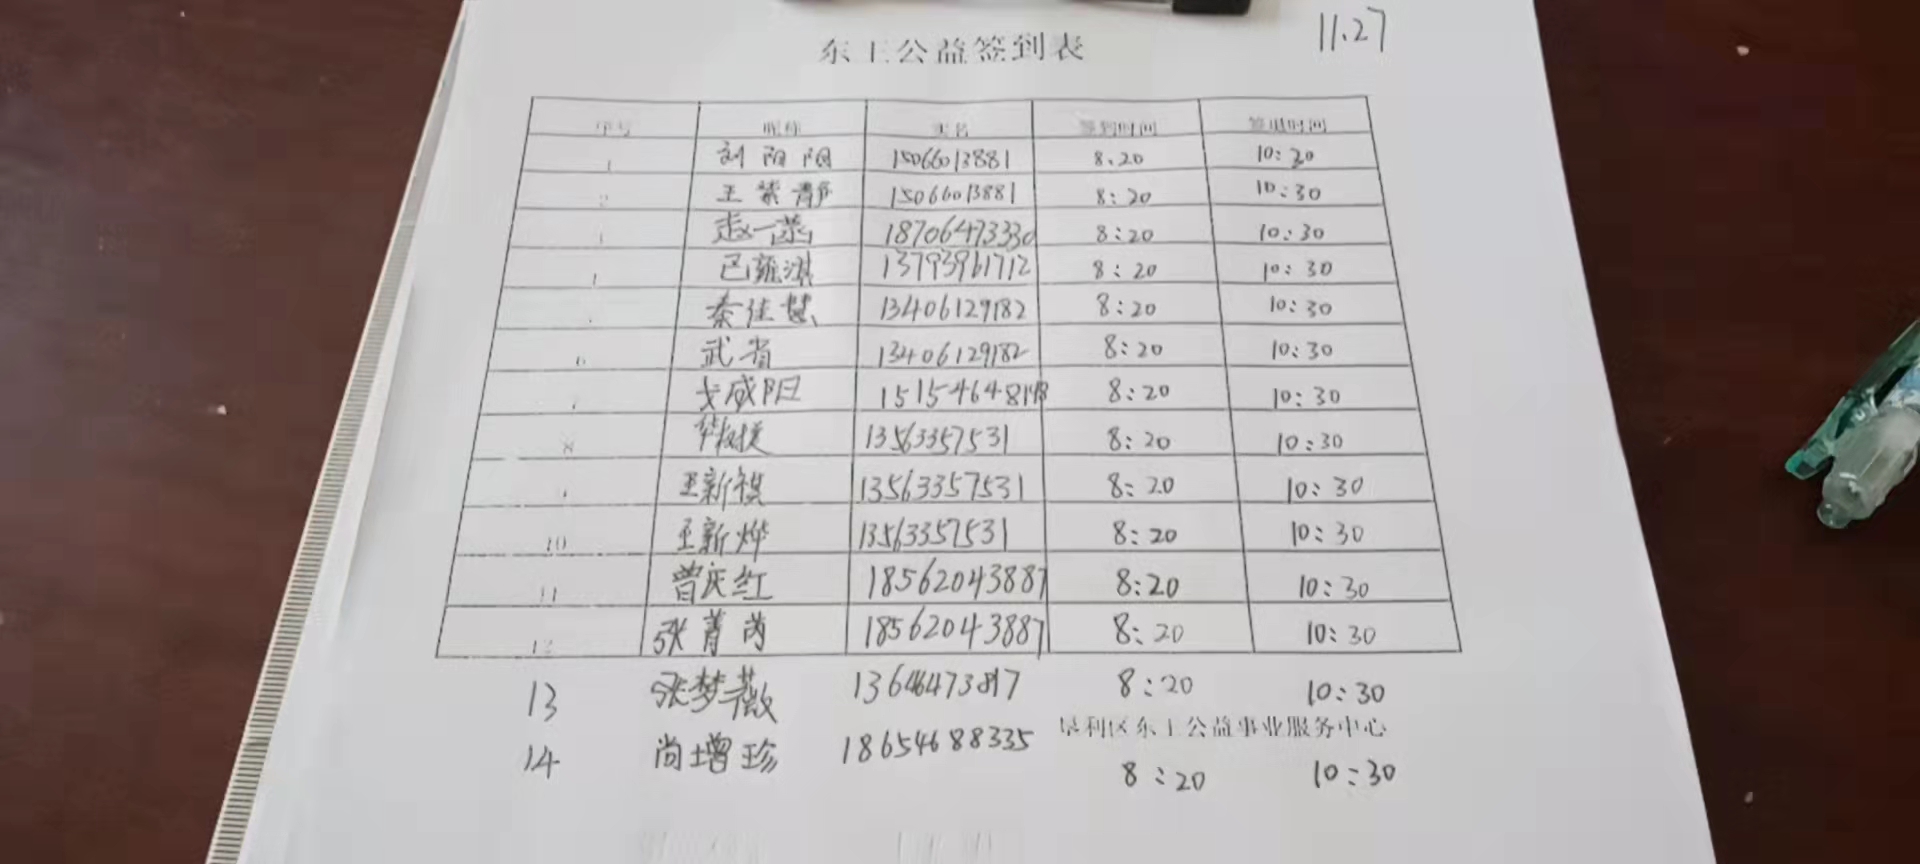 11.27
东王公益签到表
序号 昵称 实名 签到时间 签退时间
1 刘阳阳 15066013881 8.20 10:30
2 王紫静 15066013881 8:20 10:30
赵一菡 18706473330 8:20 10:30
巴雍淇 13793961712 8:20 10:30
秦佳慧 13406129182 8:20 10:30
6 武省 13406129182 8:20 10:30
7 戈咸阳 15154648148 8:20 10:30
8 13563357531 8:20 10:30
王新祺 13563357531 8:20 10:30
10 王新烨 13563357531 8:20 10:30
11 曾庆红 18562043887 8:20 10:30
12 张菁芮 18562043887 8:20 10:30
13 张梦薇 8:20 10:30
垦利区东王公益事业服务中心
14 尚增珍 18654688335 8:20 10:30